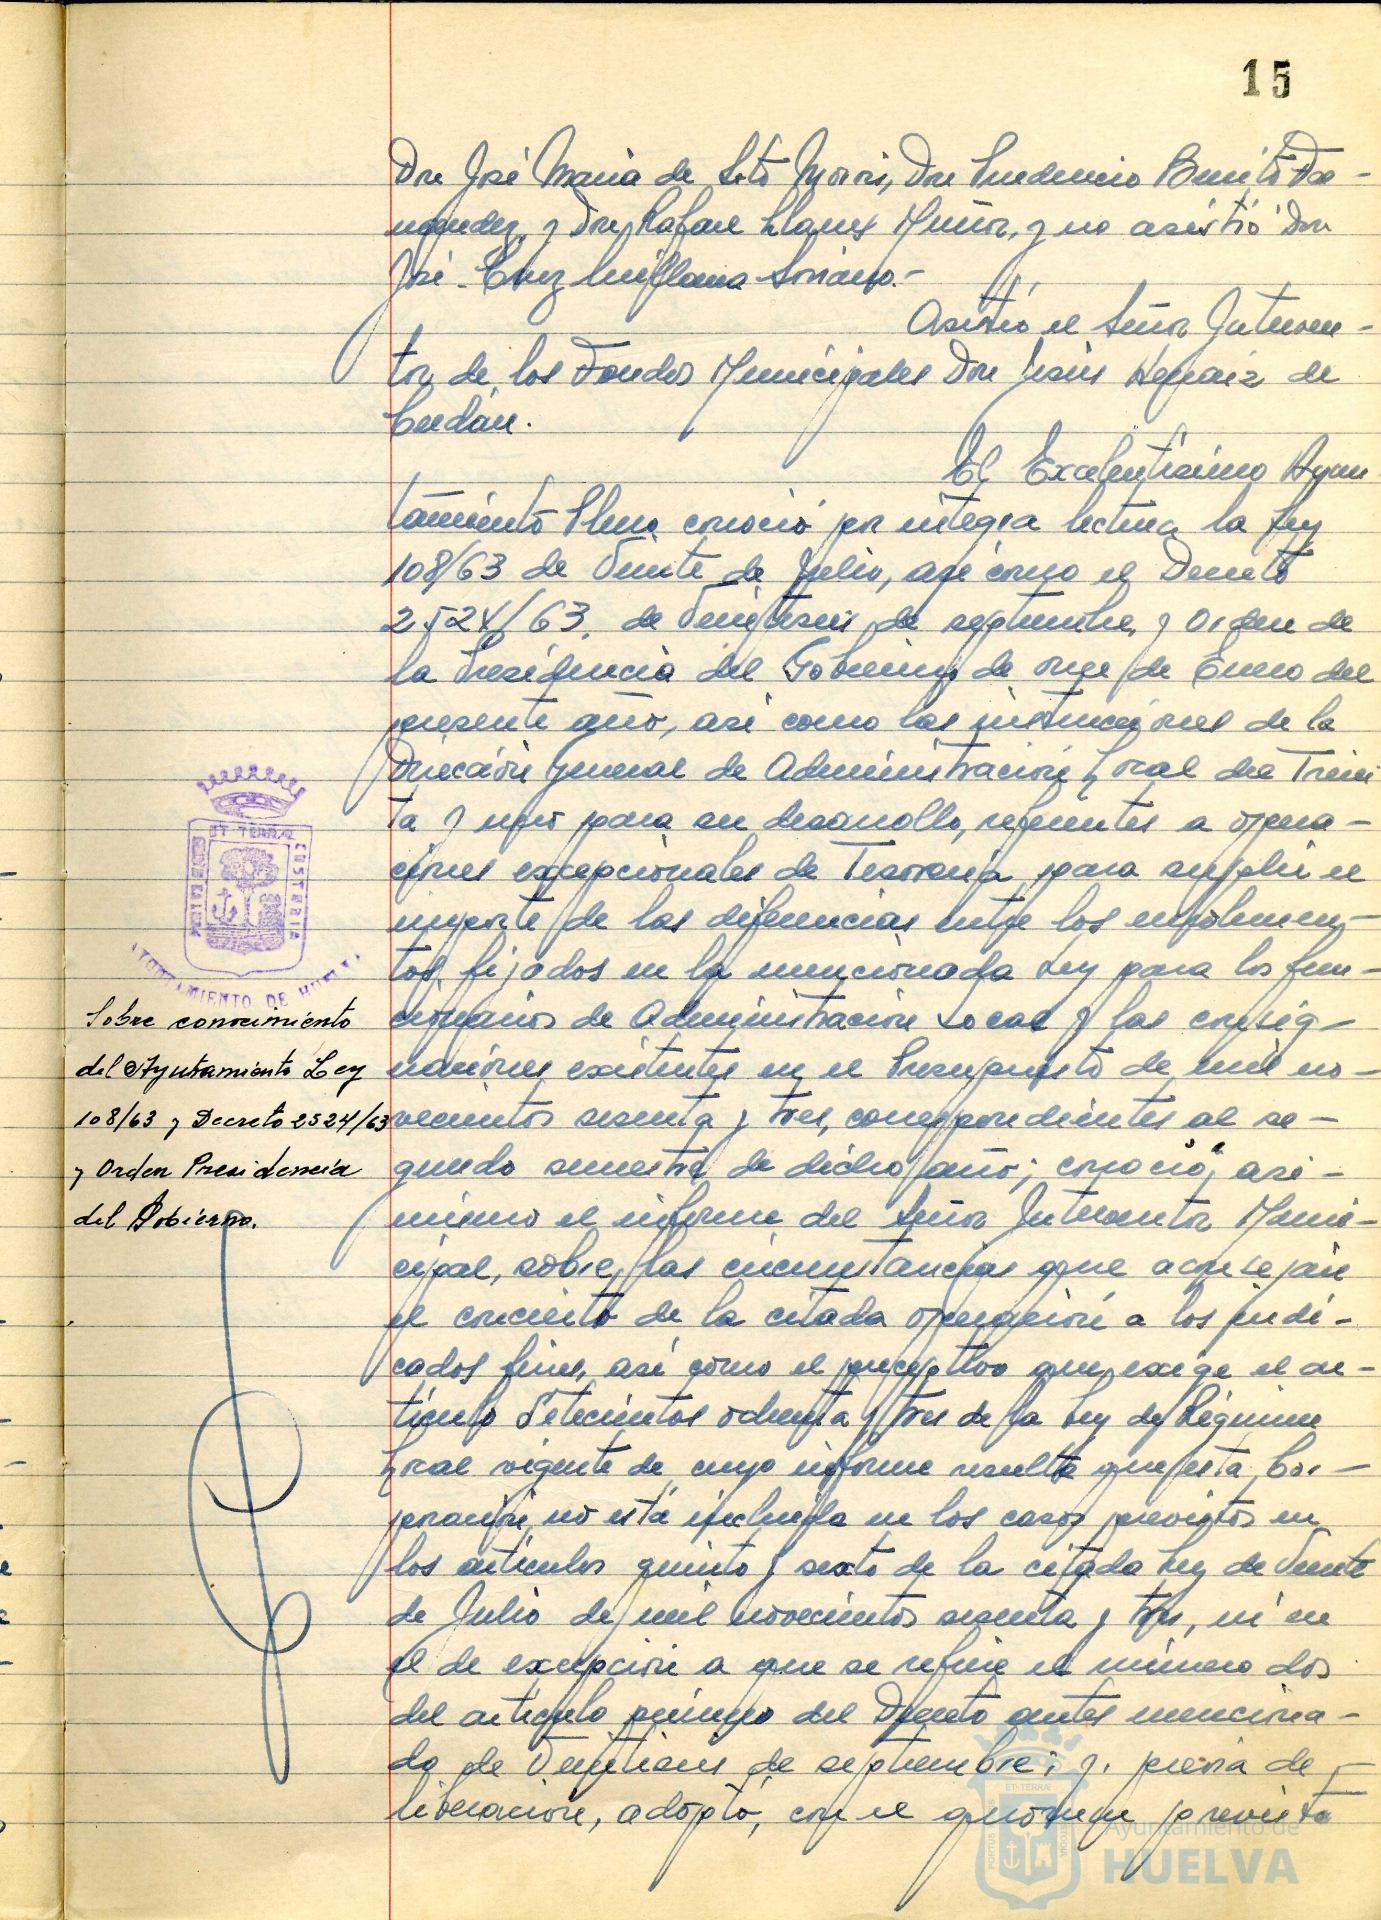 15
Don José Maria de Soto Morris, Don Prudencio Benito Fer-
nandez, y Don Rafael Llanes Muñoz, y no asistió Don
José Cruz Soriano.-
Asistió el Señor Interven-
tor de los Fondos Municipales Don Jesús de
Cerdán.
El Excelentísimo Ayun
tamiento Pleno conoció por integra lectura la Ley
108/63 de Veinte de Julio, así como el Decreto
2524/63, de Veintiseis de septiembre, y Orden de
la Presidencia del Gobierno de once de Enero del
presente año, así como las instrucciones de la
Dirección General de Administración Local de Trein
ta y uno para su desarrollo, referentes a opera-
ciones excepcionales de Tesorería para suplir el
importe de las diferencias entre los emolumen-
tos fijados en la mencionada Ley para los fun-
cionarios de Administración Local y las consig-
naciones existentes en el Presupuesto de mil no-
vecientos sesenta y tres, correspondientes al se-
gundo semestre de dicho año; conoció, asi-
mismo el informe del Señor Interventor Muni-
cipal, sobre las circunstancias que aconsejan
el concierto de la citada operación a los indi-
cados fines, así como el preceptivo que exige el ar-
tículo Setecientos ochenta y tres de la Ley de Régimen
Local vigente de cuyo informe resulta que esta Cor-
poración no está incluida en los casos previstos en
los artículos quinto y sexto de la citada Ley de Veinte
de Julio de mil novecientos sesenta y tres, ni en
el de excepción a que se refiere el número dos
del artículo primero del Decreto antes menciona-
do de Veintiseis de septiembre; y, previa de-
liberación, adoptó, con el quórum previsto
ET TERRÆ CUSTODIA
AYUNTAMIENTO DE HUELVA
Sobre conocimiento
del Ayuntamiento Ley
108/63 y Decreto 2524/63
y Orden Presidencia
del Gobierno.
Ayuntamiento de
HUELVA